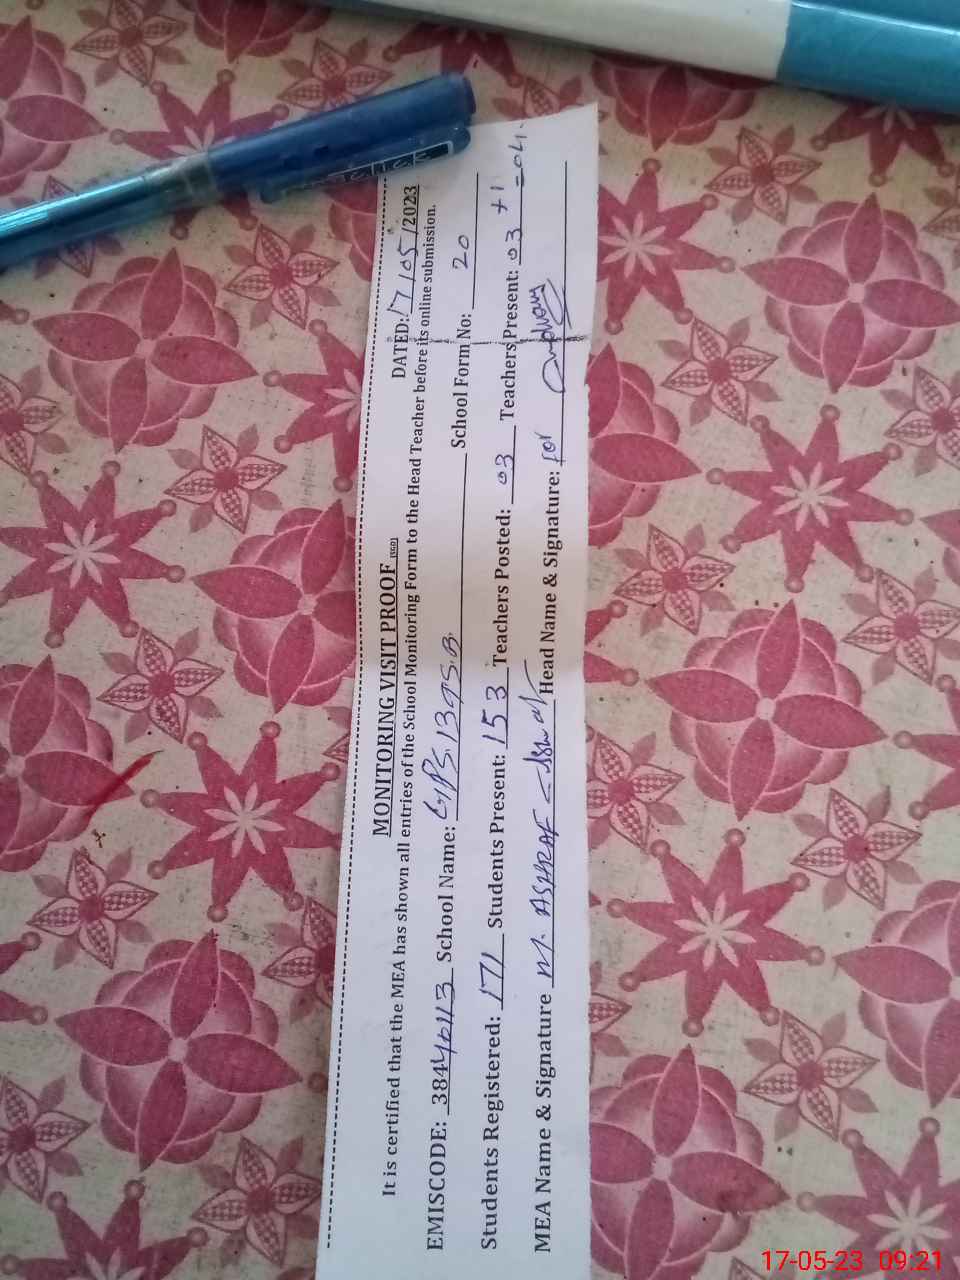 MONITORING VISIT PROOF (SGD) DATED: 17/05/2023
It is certified that the MEA has shown all entries of the School Monitoring Form to the Head Teacher before its online submission.
EMISCODE: 38440113 School Name: GPS.139S.B. School Form No: 20
Students Registered: 171 Students Present: 153 Teachers Posted: 03 Teachers Present: 03 +1 =04.
MEA Name & Signature M. ASHRAF Head Name & Signature: for
17-05-23 09:21